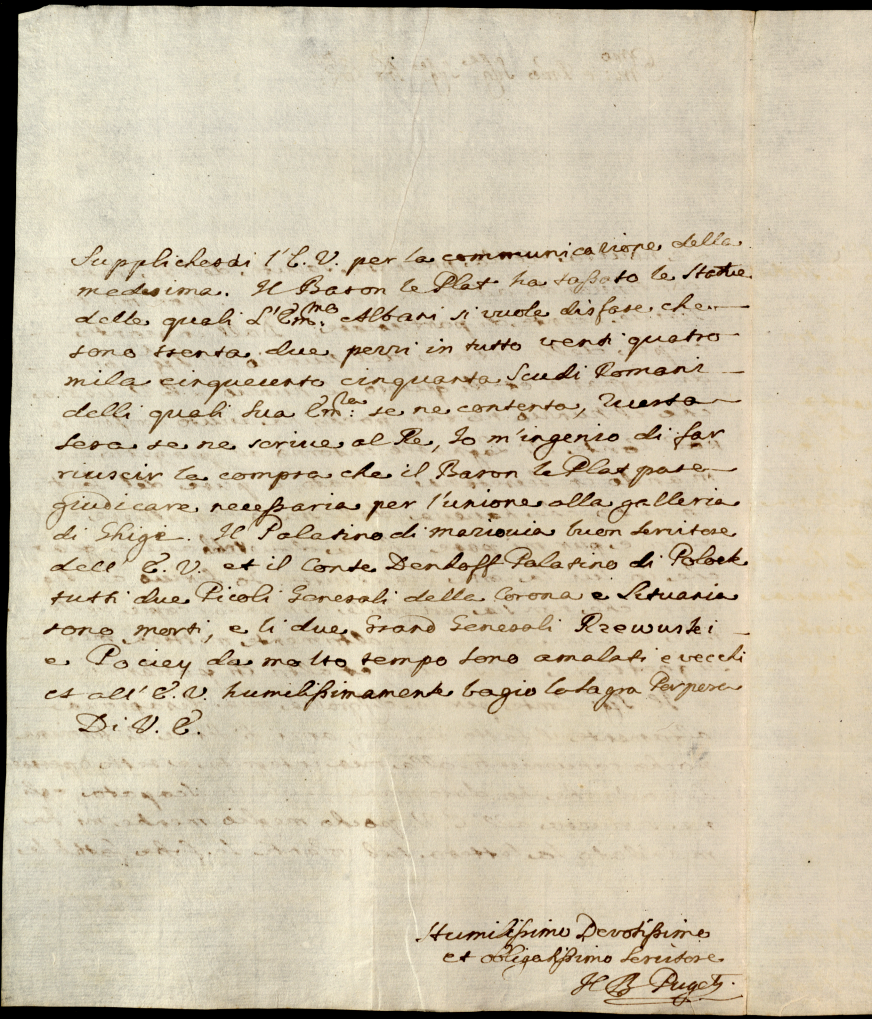 Supplicherai l'E. V. per la communicazione della
medesima. Il Baron le Plat ha tassato le Statue
delle quali L'Em:mo Albani si vuole disfare che
sono trenta due pezzi in tutto venti quatro
mila cinquecento cinquanta Scudi Romani
delli quali Sua Em:za se ne contenta, questa
sera se ne scrive al Re, Io m'ingenio di far
riuscir la compra che il Baron le Plat pare
giudicare necessaria per l'unione alla galleria
di Ghigi. Il Palatino di mazovia buon servitore
dell' E. V. et il Conte Denhoff Palatino di Polock
tutti due Picoli Generali della Corona e Lituania
sono morti, e li due Grand Generali Rzewuski
e Pociey da molto tempo sono amalati e vecchi
et all' E. V. humilissimamente bagio la sagra Porpora
Di V. E.
Humilissimo Devotissimo
et obligatissimo servitore
Il B Puget